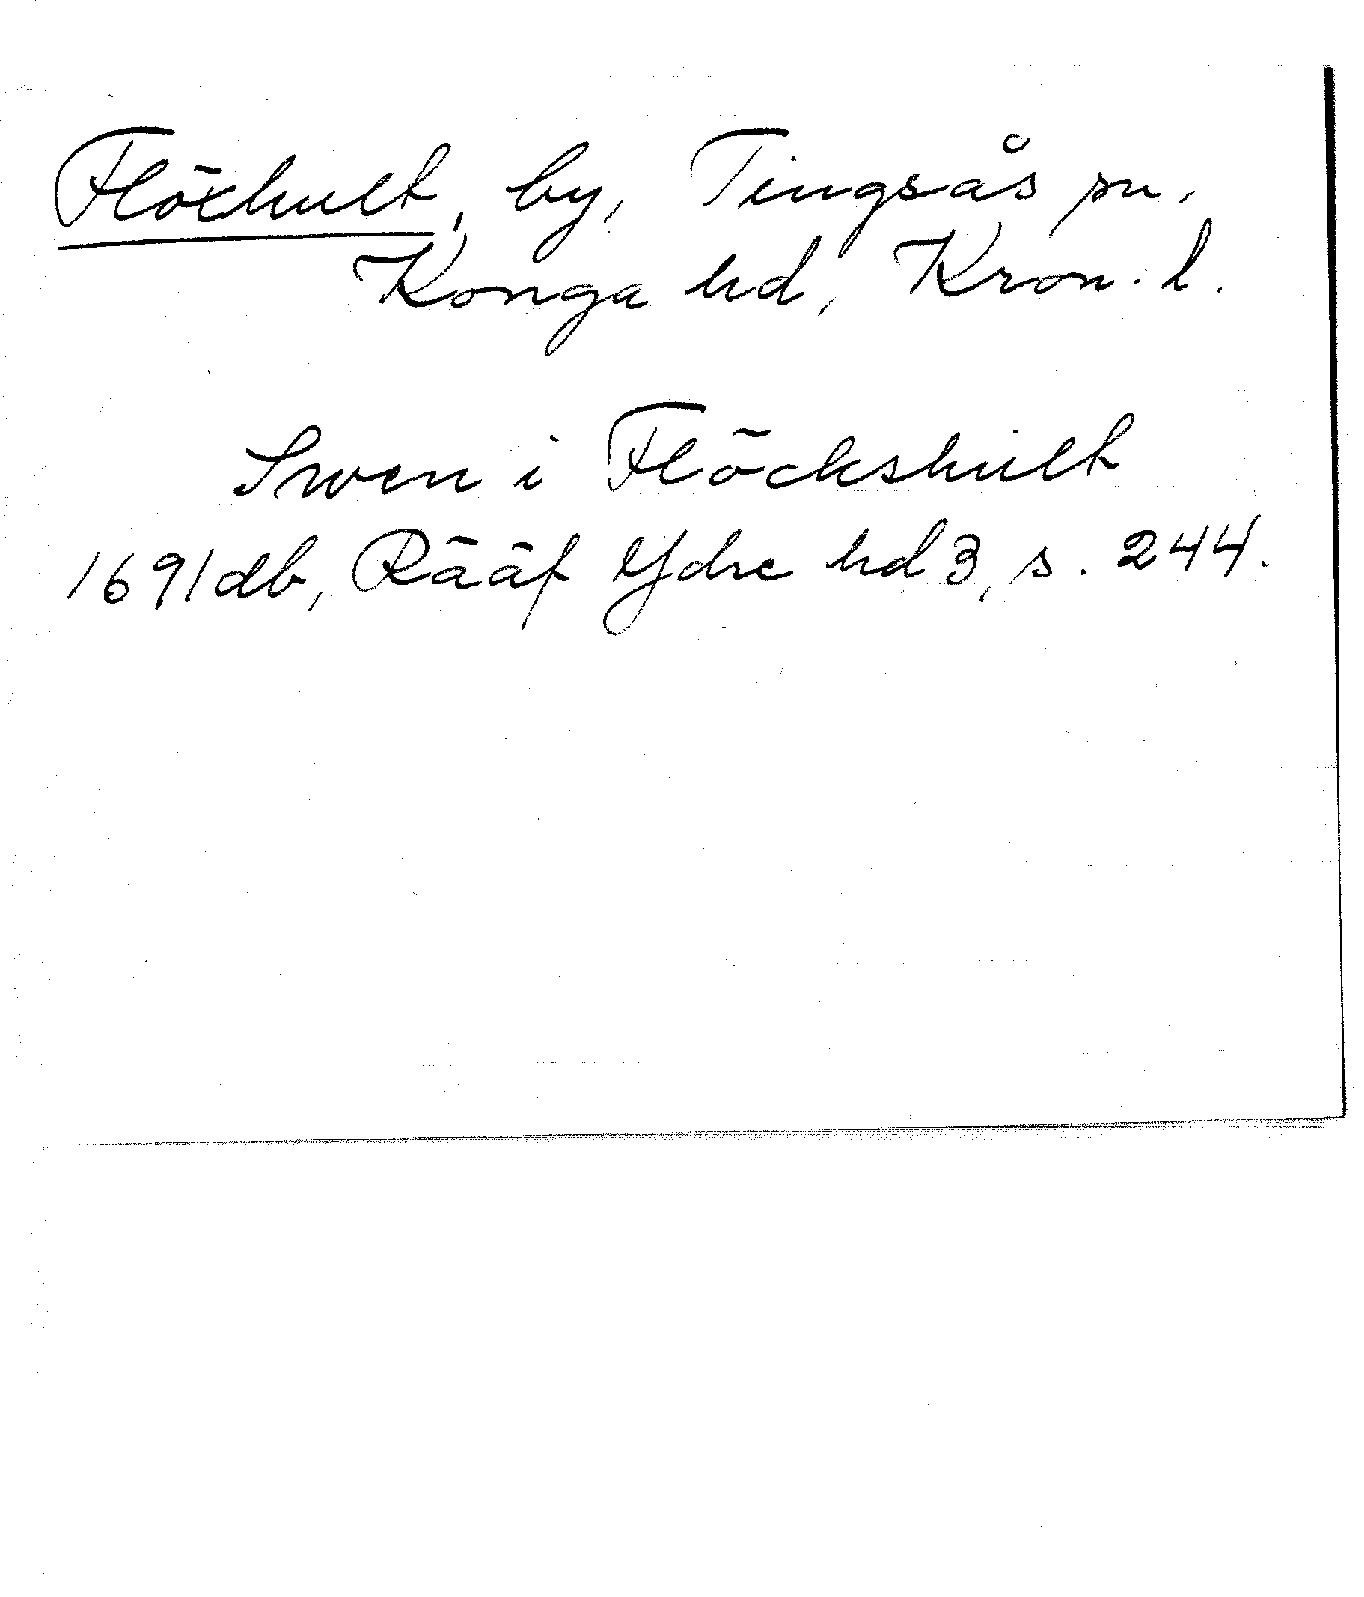 Flöxhult, by, Tingsås sn.
Konga hd, Kron. l.
Swen i Flöckshult
1691 db, Rääf Ydre hd 3, s. 244.